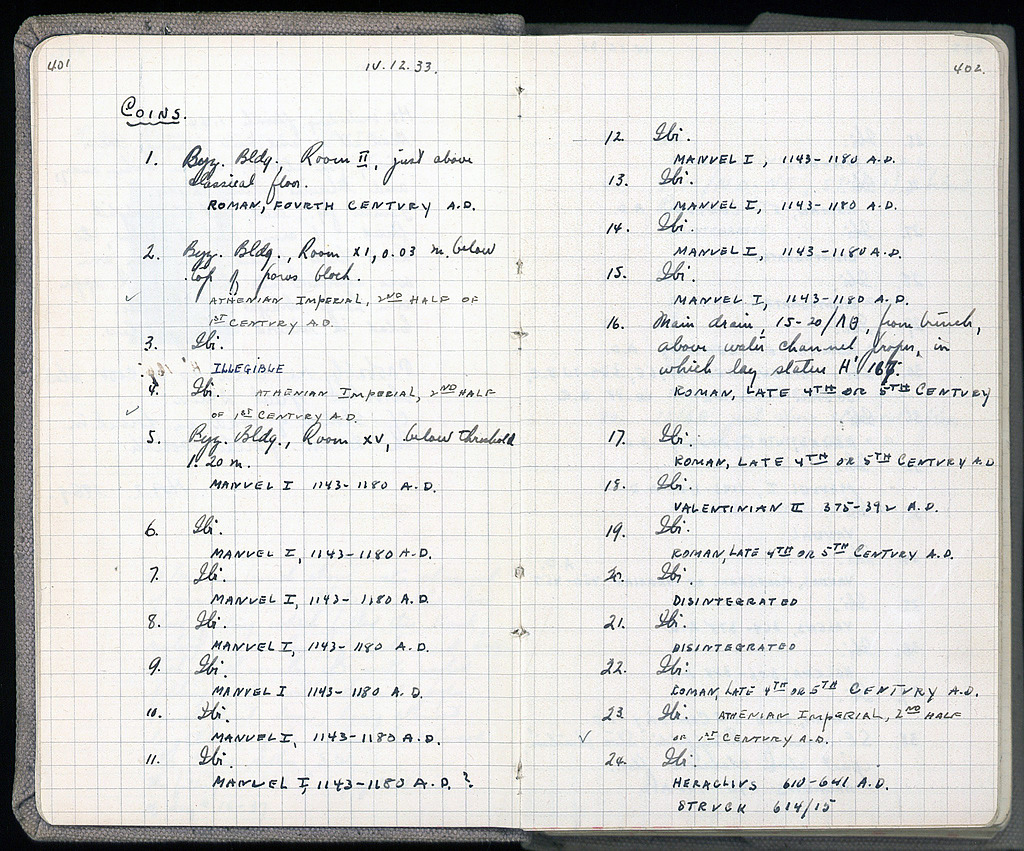 401
IV.12.33.
COINS.
1. Byz. Bldg., Room II, just above
classical floor.
ROMAN, FOURTH CENTURY A.D.
2. Byz. Bldg., Room XI, 0.03 m. below
top of poros block.
✓ ATHENIAN IMPERIAL, 2ND HALF OF
1ST CENTURY A.D.
3. Ibi.
ILLEGIBLE
4. Ibi. ATHENIAN IMPERIAL, 2ND HALF
✓ OF 1ST CENTURY A.D.
5. Byz. Bldg., Room XV, below threshold
1.20 m.
MANVEL I 1143-1180 A.D.
6. Ibi.
MANVEL I, 1143-1180 A.D.
7. Ibi.
MANVEL I, 1143-1180 A.D.
8. Ibi.
MANVEL I, 1143-1180 A.D.
9. Ibi.
MANVEL I 1143-1180 A.D.
10. Ibi.
MANVEL I, 1143-1180 A.D.
11. Ibi.
MANVEL I, 1143-1180 A.D. ?
402.
12. Ibi.
MANVEL I, 1143-1180 A.D.
13. Ibi.
MANVEL I, 1143-1180 A.D.
14. Ibi.
MANVEL I, 1143-1180 A.D.
15. Ibi.
MANVEL I, 1143-1180 A.D.
16. Main drain, 15-20/ΛΘ, from trench,
above water channel proper, in
which lay statue H' 167.
ROMAN, LATE 4TH OR 5TH CENTURY
17. Ibi.
ROMAN, LATE 4TH OR 5TH CENTURY A.D
18. Ibi.
VALENTINIAN II 375-392 A.D.
19. Ibi.
ROMAN, LATE 4TH OR 5TH CENTURY A.D.
20. Ibi.
DISINTEGRATED
21. Ibi.
DISINTEGRATED
22. Ibi.
ROMAN, LATE 4TH OR 5TH CENTVRY A.D.
23 Ibi. ATHENIAN IMPERIAL, 2ND HALF
✓ OF 1ST CENTURY A.D.
24. Ibi.
HERACLIVS 610-641 A.D.
STRUCK 614/15